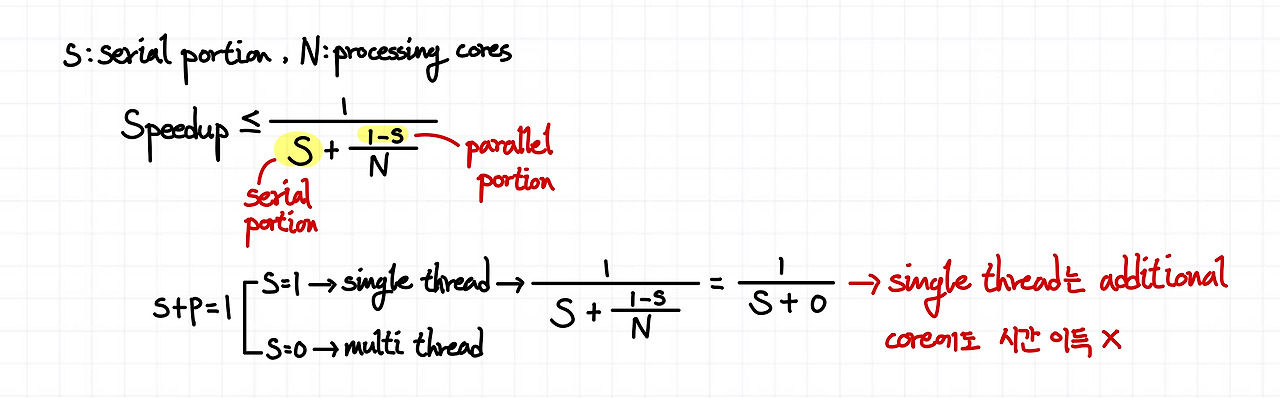 S:serial portion, N:processing cores
Speedup ≤ 1 / (S + (1-S)/N)
parallel portion
serial portion
S+P=1
S=1 → single thread → 1 / (S + (1-S)/N) = 1 / (S + 0) → single thread는 additional
core에도 시간 이득 X
S=0 → multi thread